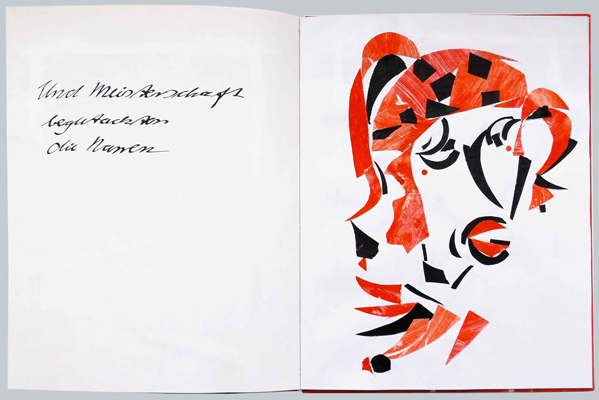 Und Meisterschaft
begutachten
die Narren